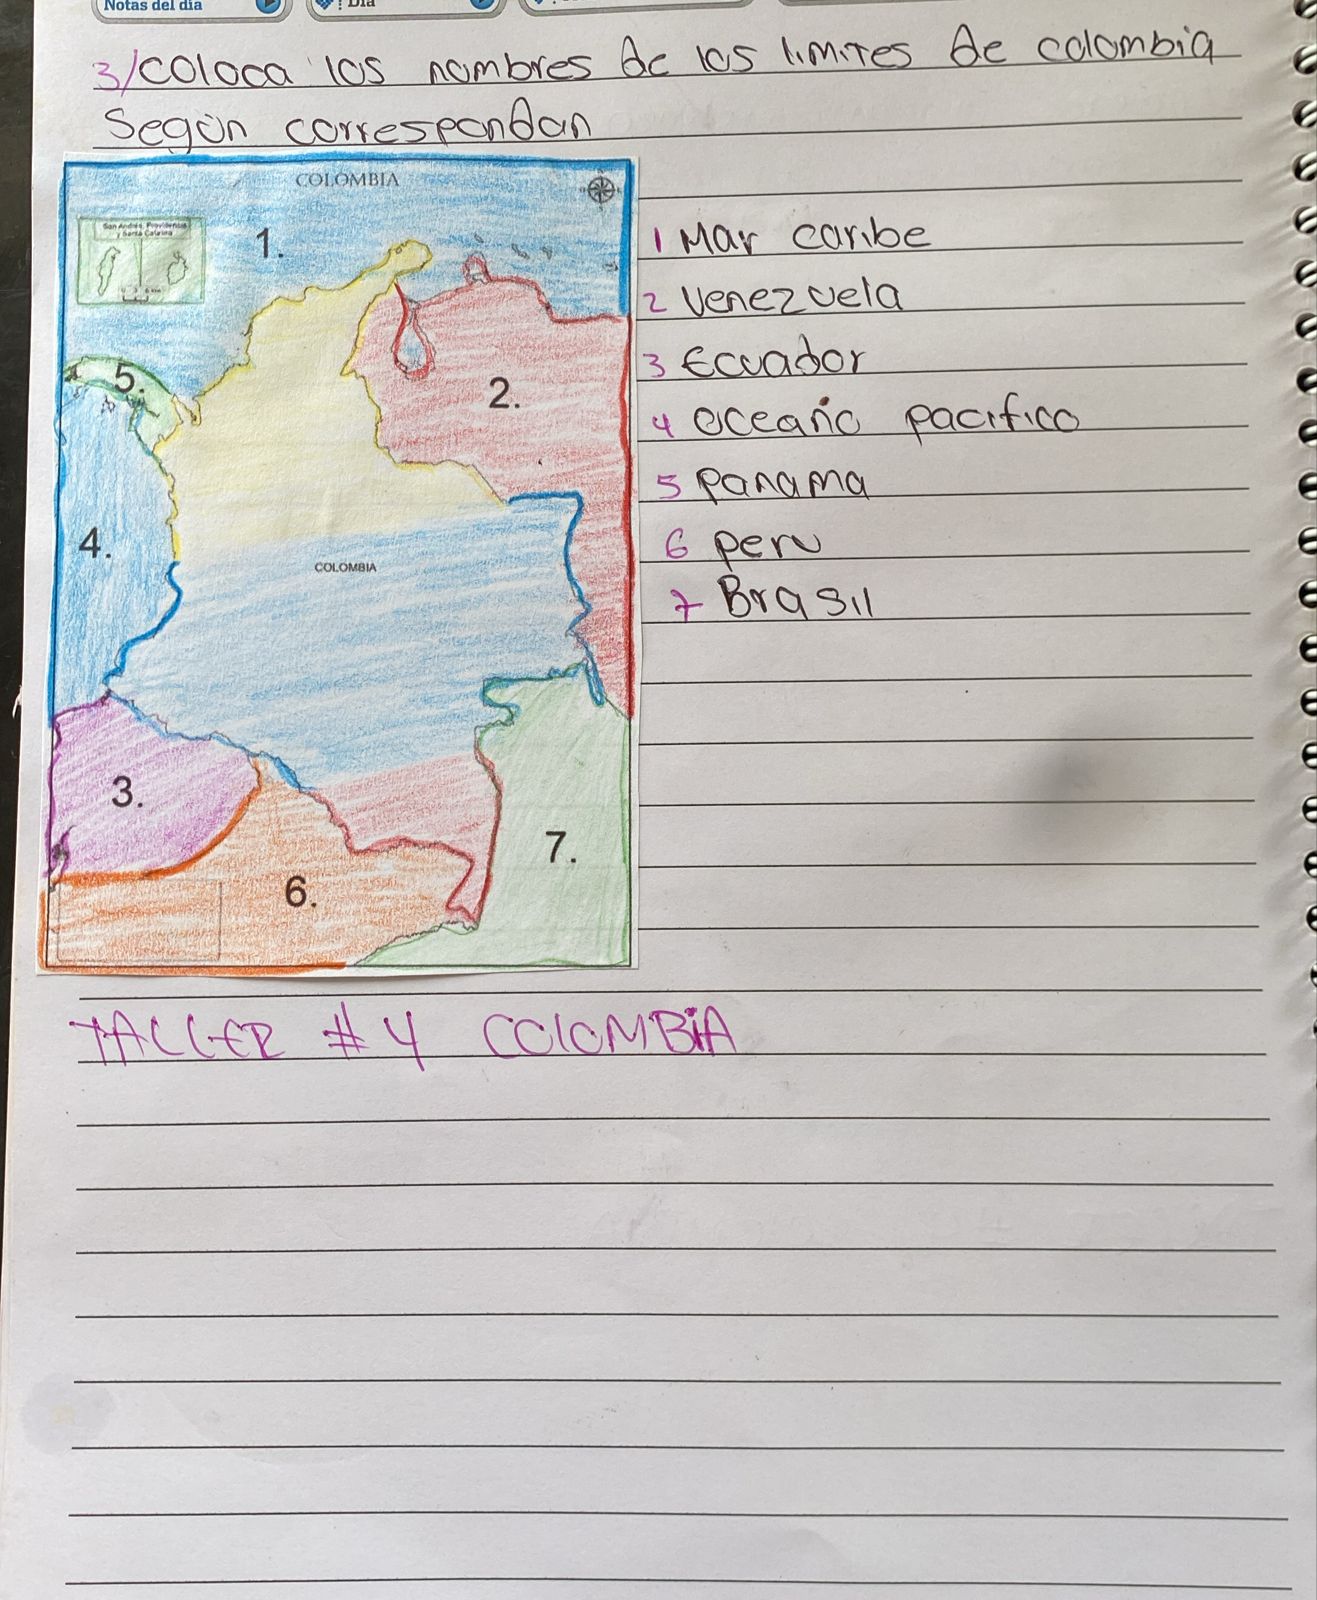 Notas del día
Día
3/coloca los nombres de los limites de colombia
Según correspondan
COLOMBIA
San Andrés, Providencia
y Santa Catalina
1.
5.
2.
4.
COLOMBIA
3.
7.
6.
1 Mar caribe
2 Venezuela
3 Ecuador
4 oceano pacifico
5 panama
6 peru
7 Brasil
TALLER #4 COLOMBIA